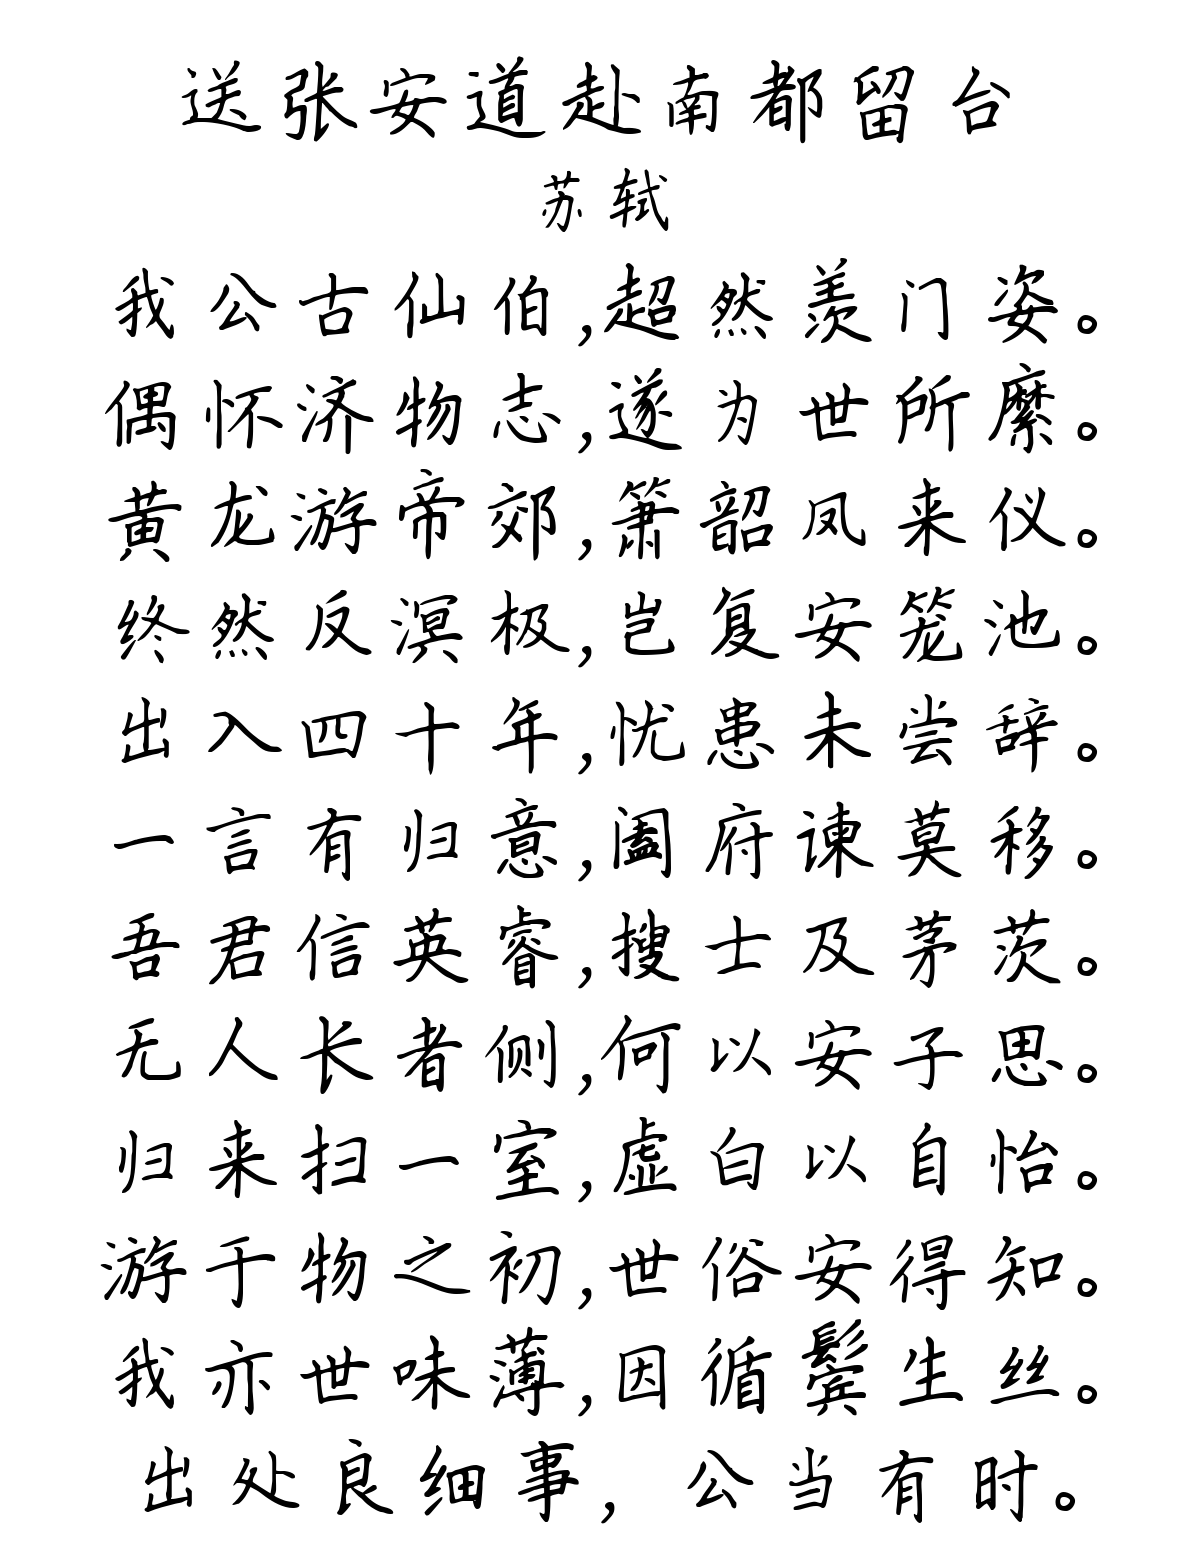 送张安道赴南都留台
苏轼
我公古仙伯,超然羡门姿。
偶怀济物志,遂为世所縻。
黄龙游帝郊,箫韶凤来仪。
终然反溟极,岂复安笼池。
出入四十年,忧患未尝辞。
一言有归意,阖府谏莫移。
吾君信英睿,搜士及茅茨。
无人长者侧,何以安子思。
归来扫一室,虚白以自怡。
游于物之初,世俗安得知。
我亦世味薄,因循鬓生丝。
出处良细事,公当有时。